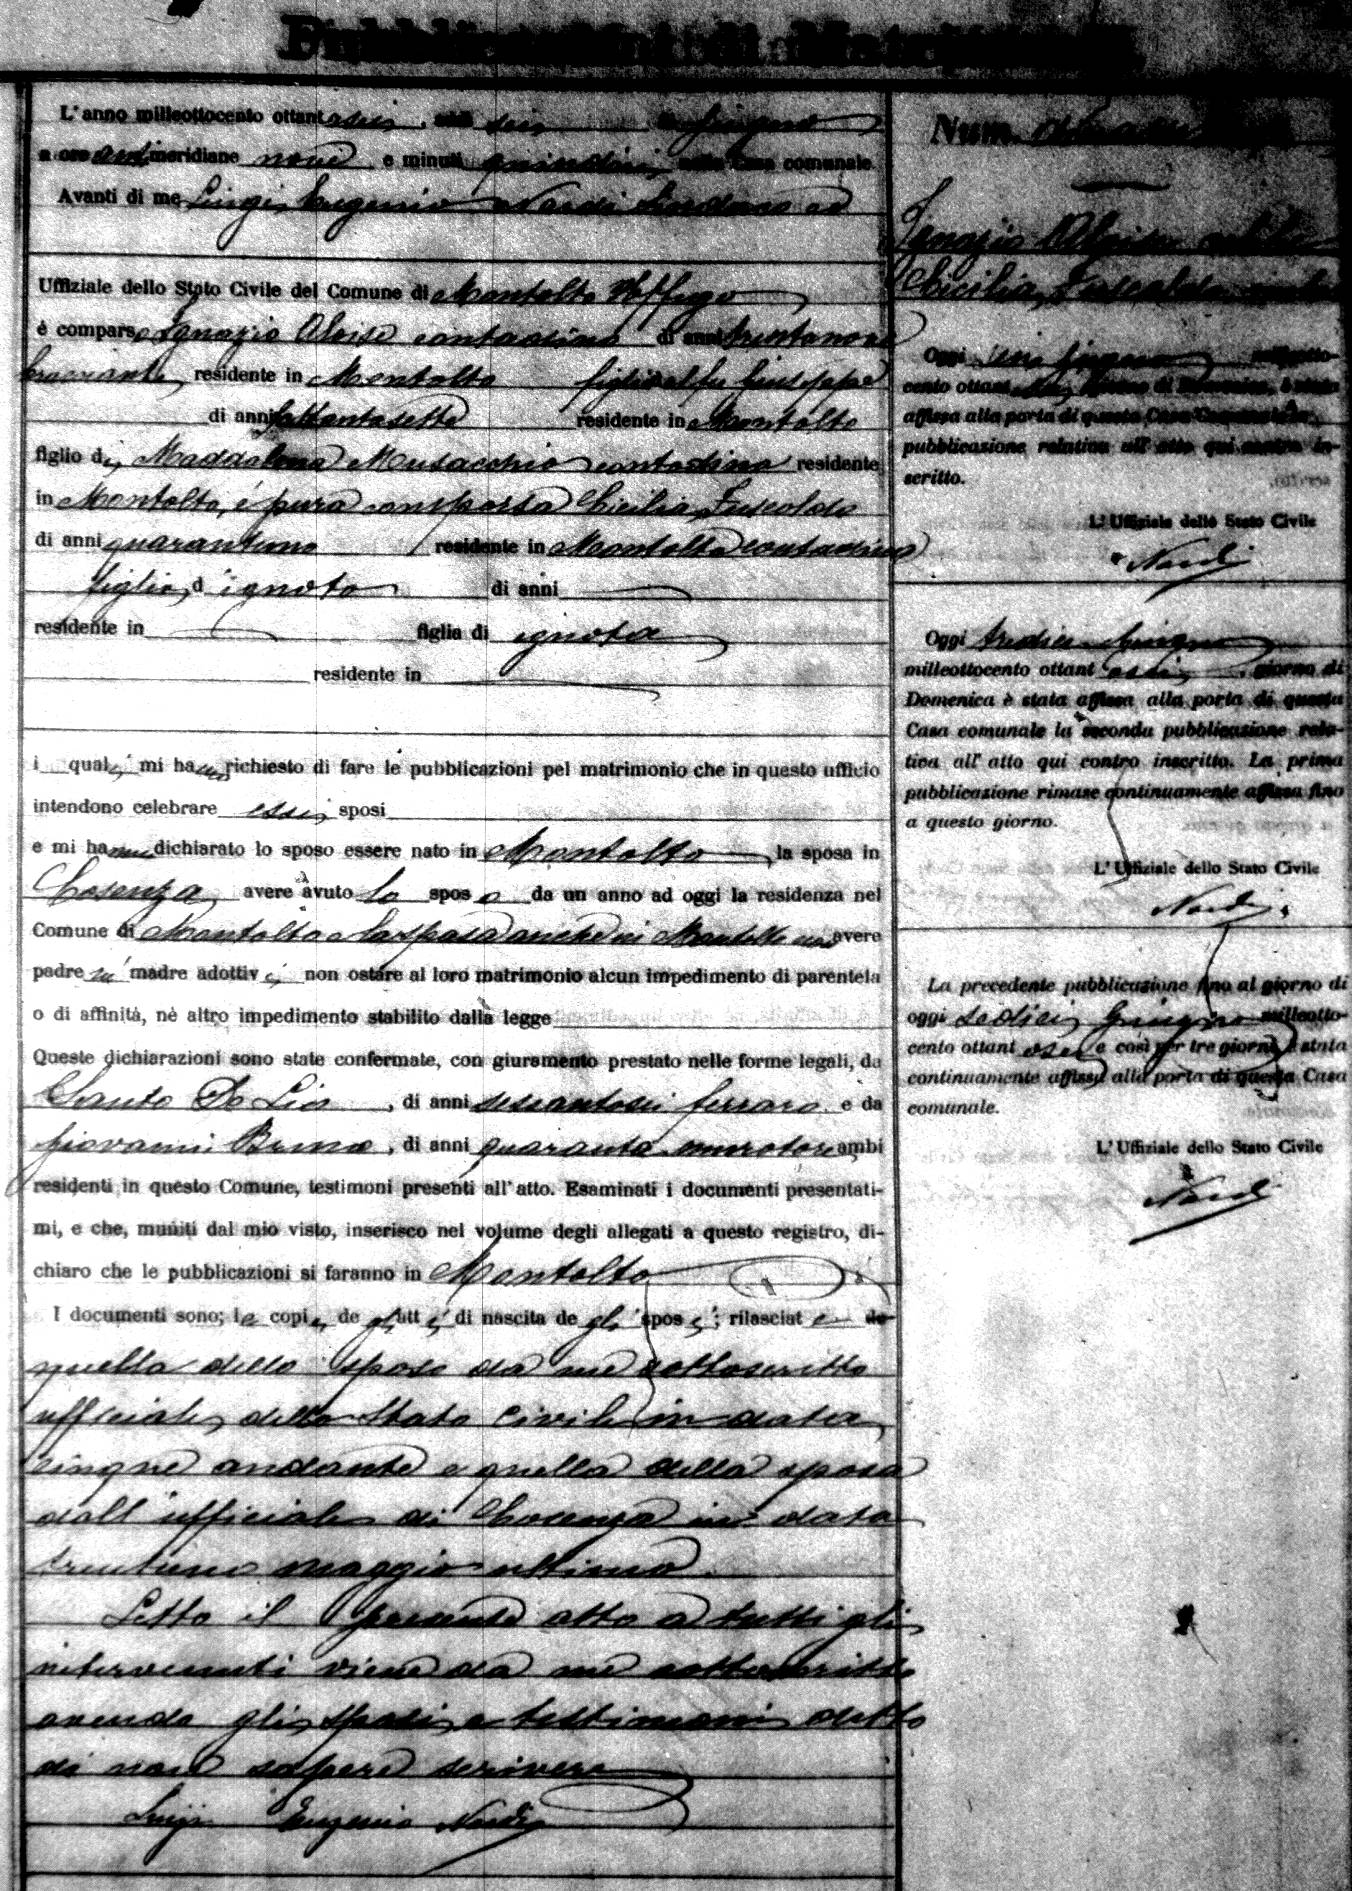 Pubblicazioni di Matrimonio
L'anno milleottocento ottantasei, addì sei di Giugno
a ore antimeridiane nove e minuti quindici, nella Casa comunale.
Avanti di me Luigi Eugenio Nardi
Uffiziale dello Stato Civile del Comune di Montalto Uffugo
è comparso Ignazio Aloise contadino di anni trentanove
bracciante, residente in Montalto figlio del fu Giuseppe
di anni settantasette residente in Montalto
figlio di Maddalena Musacchio contadina residente
in Montalto, è pura comparsa Cicilia Fuscaldo
di anni quarantuno residente in Montalto contadina
figlia d'ignoto di anni
residente in figlia di ignota
residente in
i quali mi hanno richiesto di fare le pubblicazioni pel matrimonio che in questo ufficio
intendono celebrare essi sposi
e mi hanno dichiarato lo sposo essere nato in Montalto, la sposa in
Cosenza, avere avuto lo sposo da un anno ad oggi la residenza nel
Comune di Montalto e la sposa anche in Montalto avere
padre nè madre adottivi, non ostare al loro matrimonio alcun impedimento di parentela
o di affinità, nè altro impedimento stabilito dalla legge
Queste dichiarazioni sono state confermate, con giuramento prestato nelle forme legali, da
Santo De Lio, di anni sessantasei ferraro e da
Giovanni Bruno, di anni quaranta muratore ambi
residenti in questo Comune, testimoni presenti all'atto. Esaminati i documenti presentati-
mi, e che, muniti dal mio visto, inserisco nel volume degli allegati a questo registro, di-
chiaro che le pubblicazioni si faranno in Montalto
I documenti sono; le copie degli atti di nascita degli sposi; rilasciate
quella dello sposo da me sottoscritto
ufficiale dello Stato Civile in data
cinque andante e quella della sposa
dall'ufficiale di Cosenza in data
trentuno maggio ultimo.
Letto il presente atto a tutti gli
intervenuti viene da me sottoscritto
avendo gli sposi e testimoni detto
di non sapere scrivere
Luigi Eugenio Nardi
Num.
Ignazio Aloise
Cicilia Fuscaldo
Oggi sei Giugno milleotto-
cento ottantasei, giorno di Domenica, è stata
affissa alla porta di questa Casa Comunale la
pubblicazione relativa all'atto qui contro in-
scritto.
L'Uffiziale dello Stato Civile
Nardi
Oggi tredici Giugno
milleottocento ottantasei, giorno di
Domenica è stata affissa alla porta di questa
Casa comunale la seconda pubblicazione rela-
tiva all'atto qui contro inscritto. La prima
pubblicazione rimase continuamente affissa fino
a questo giorno.
L'Uffiziale dello Stato Civile
Nardi
La precedente pubblicazione fino al giorno di
oggi sedici Giugno milleotto-
cento ottantasei e così per tre giorni è stata
continuamente affissa alla porta di questa Casa
comunale.
L'Uffiziale dello Stato Civile
Nardi